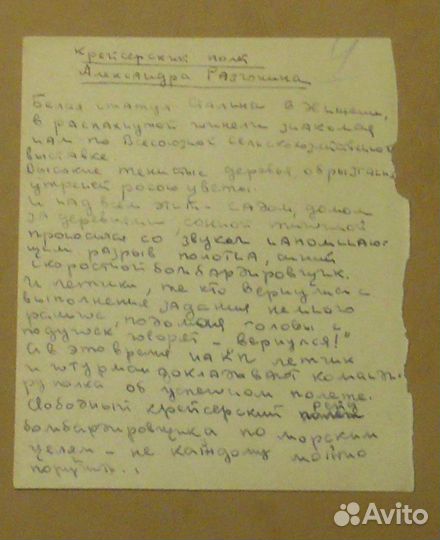 Крейсерский полёт
Александра Разгонина
Белая статуя Сталина в
в распахнутой шинели знакомая
нам по Всесоюзной сельскохозяйственной
выставке.
Высокие тенистые деревья обрызганные
утренней росою цветы.
И над всем этим садом, домом
за деревьями, сонной тишиной
проносился со звуком напоминаю-
щим разрыв полотна, синий
скоростной бомбардировщик.
И летчики, те кто вернулись с
выполнения задания немного
раньше, подымая головы с
подушек говорят - вернулся!"
А в это время на КП летчик
и штурман докладывают команди-
ру полка об успешном полете.
Свободный крейсерский рейд
полёт
бомбардировщика по морским
целям - не каждому можно
поручить...
Avito